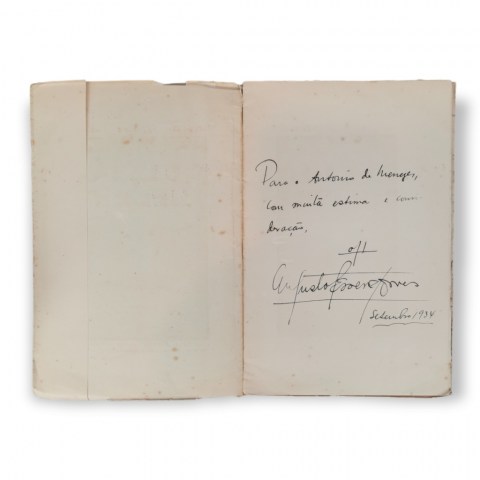 Para o Antonio de Menezes,
com muita estima e consi
deração,
off
Augusto
Setembro 1934